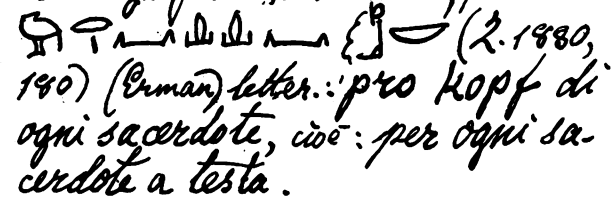 (Z. 1880,
180) (Erman) letter.: pro kopf di
ogni sacerdote, cioè: per ogni sa-
cerdote a testa.